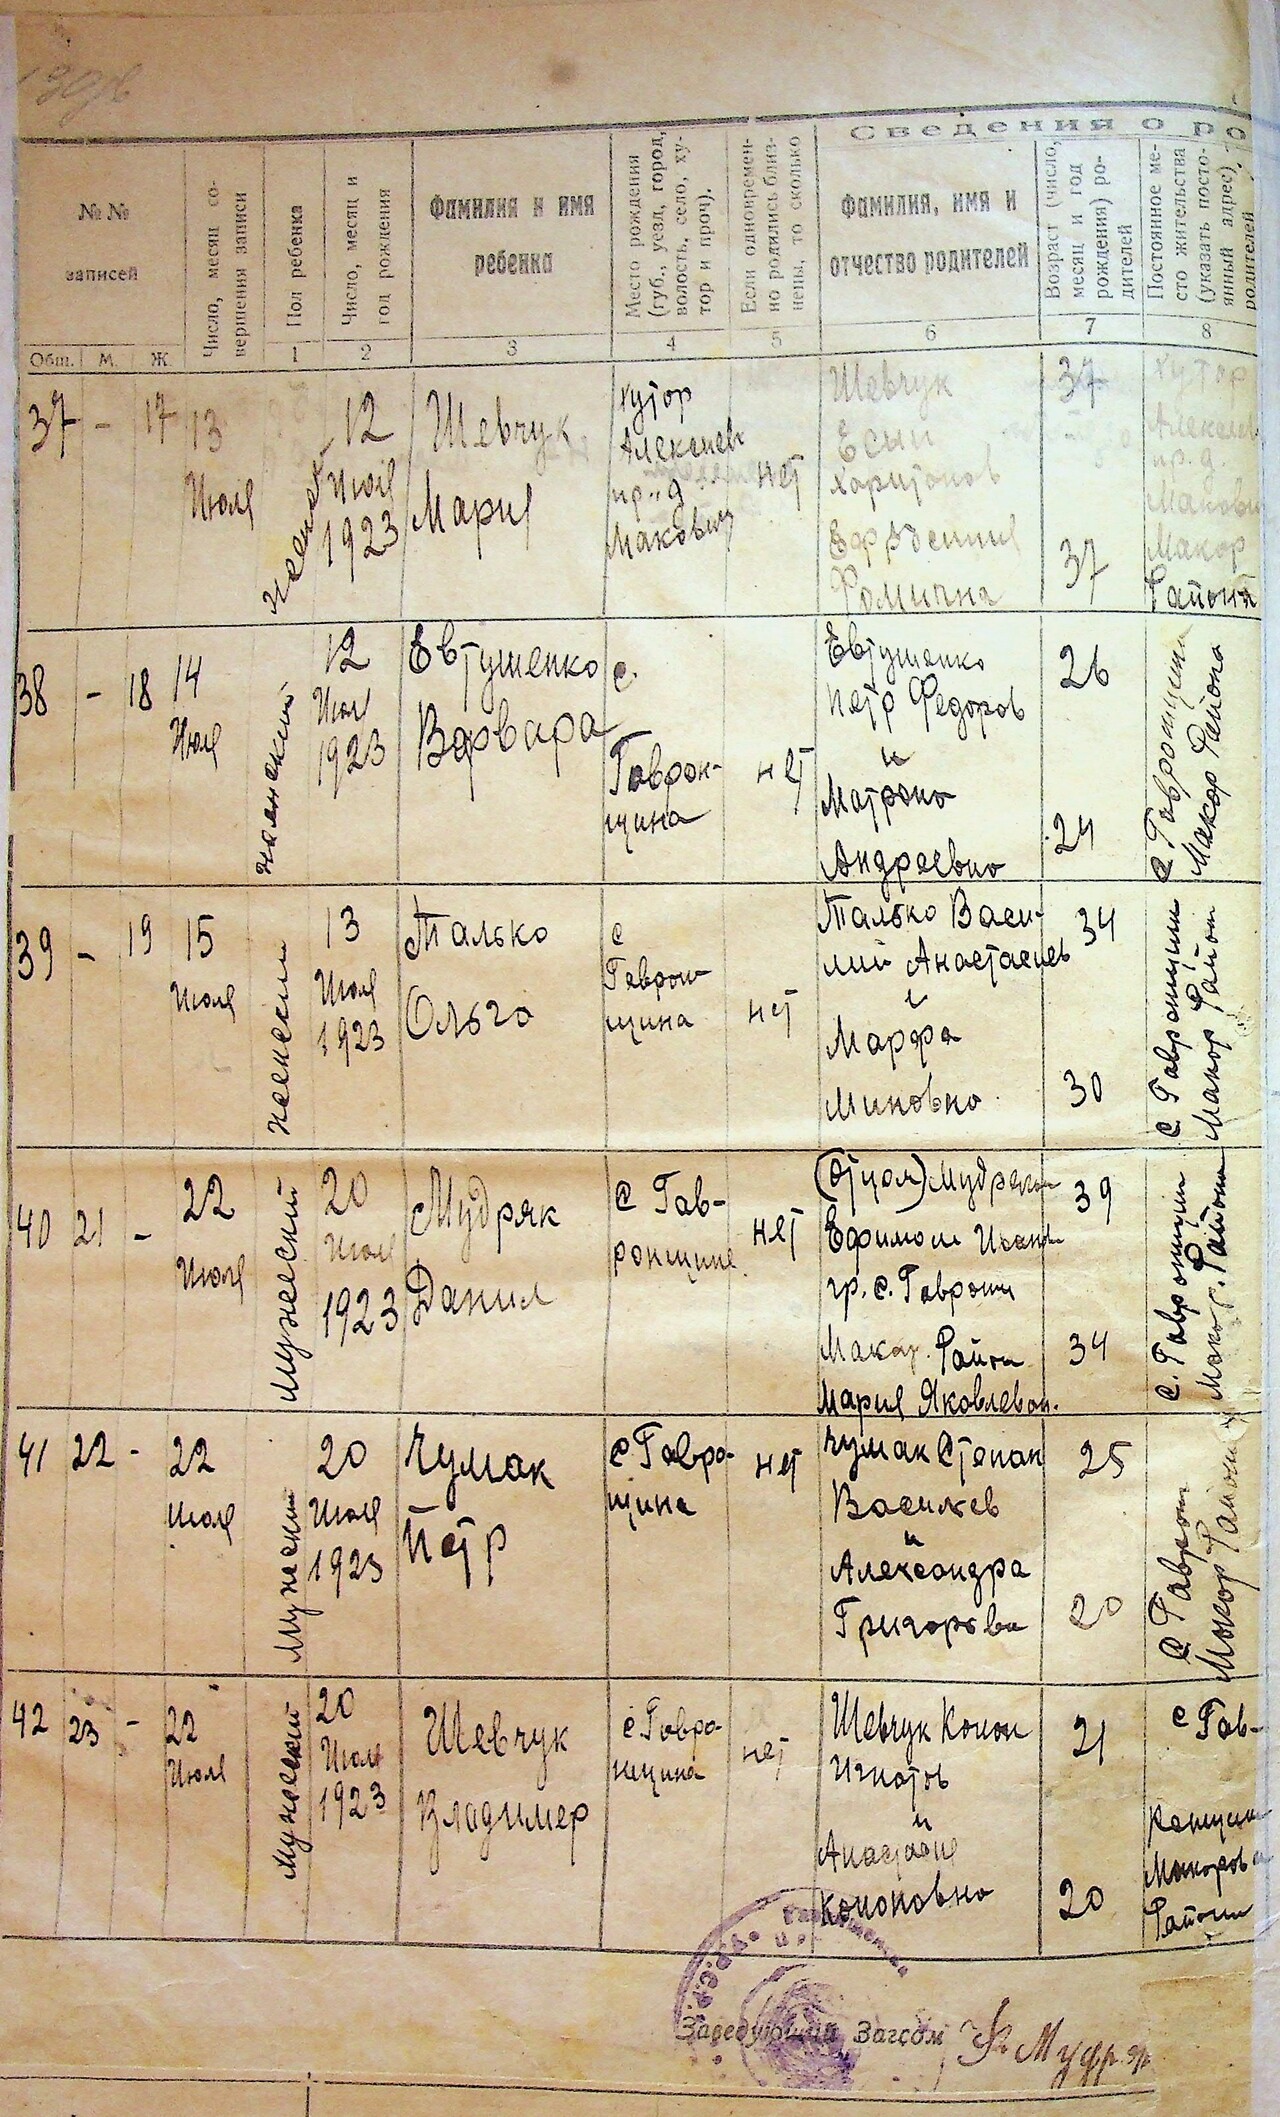 Сведения о ро-
№№
записей
Общ. М. Ж.
Число, месяц со-
вершения записи
Пол ребенка
1
Число, месяц и
год рождения
2
Фамилия и имя
ребенка
3
Место рождения
(губ., уезд, город,
волость, село, ху-
тор и проч).
4
Если одновремен-
но родились близ-
нецы, то сколько
5
Фамилия, имя и
отчество родителей
6
Возраст (число,
месяц и год
рождения) ро-
дителей
7
Постоянное ме-
сто жительства
(указать посто-
янный адрес)
родителей
8
37 - 17
13
Июля
женский
12
Июля
1923
Шевчук
Мария
хутор
нет
Шевчук
Фомична
37
37
хутор
Макар
Района
38 - 18
14
Июля
женский
12
Июля
1923
Евтушенко
Варвара
с.
Гаврон-
щина
нет
Евтушенко
Петр Федоров
и
Матрона
Андреевна
26
24
с Гавронщина
Макар Района
39 - 19
15
Июля
женский
13
Июля
1923
Талько
Ольга
с
Гаврон
щина
нет
Талько Васи-
лий Анастасиев
и
Марфа
Миновна
34
30
с Гавронщин
Макар Район
40 21 -
22
Июля
мужеский
20
Июля
1923
Мудряк
Данил
с Гав-
ронщине
нет
(Отцом) Мудряком
Ефимом
гр. с. Гаврон
Макар. Район
Мария Яковлевн.
39
34
с. Гавронщин
Макар. Района
41 22 -
22
Июля
Мужеский
20
Июля
1923
Чумак
Петр
с Гавро-
щина
нет
Чумак Степан
Васильев
и
Александра
Григорьвн
25
20
с Гаврон
Макар Район
42 23 -
22
Июля
мужеский
20
Июля
1923
Шевчук
Владимер
с Гавро-
нщина
нет
Шевчук Конон
Игнатов
и
Анастасие
Кононовна
21
20
с Гав-
ронщин
Макаров
Район
Заведующий Загсом